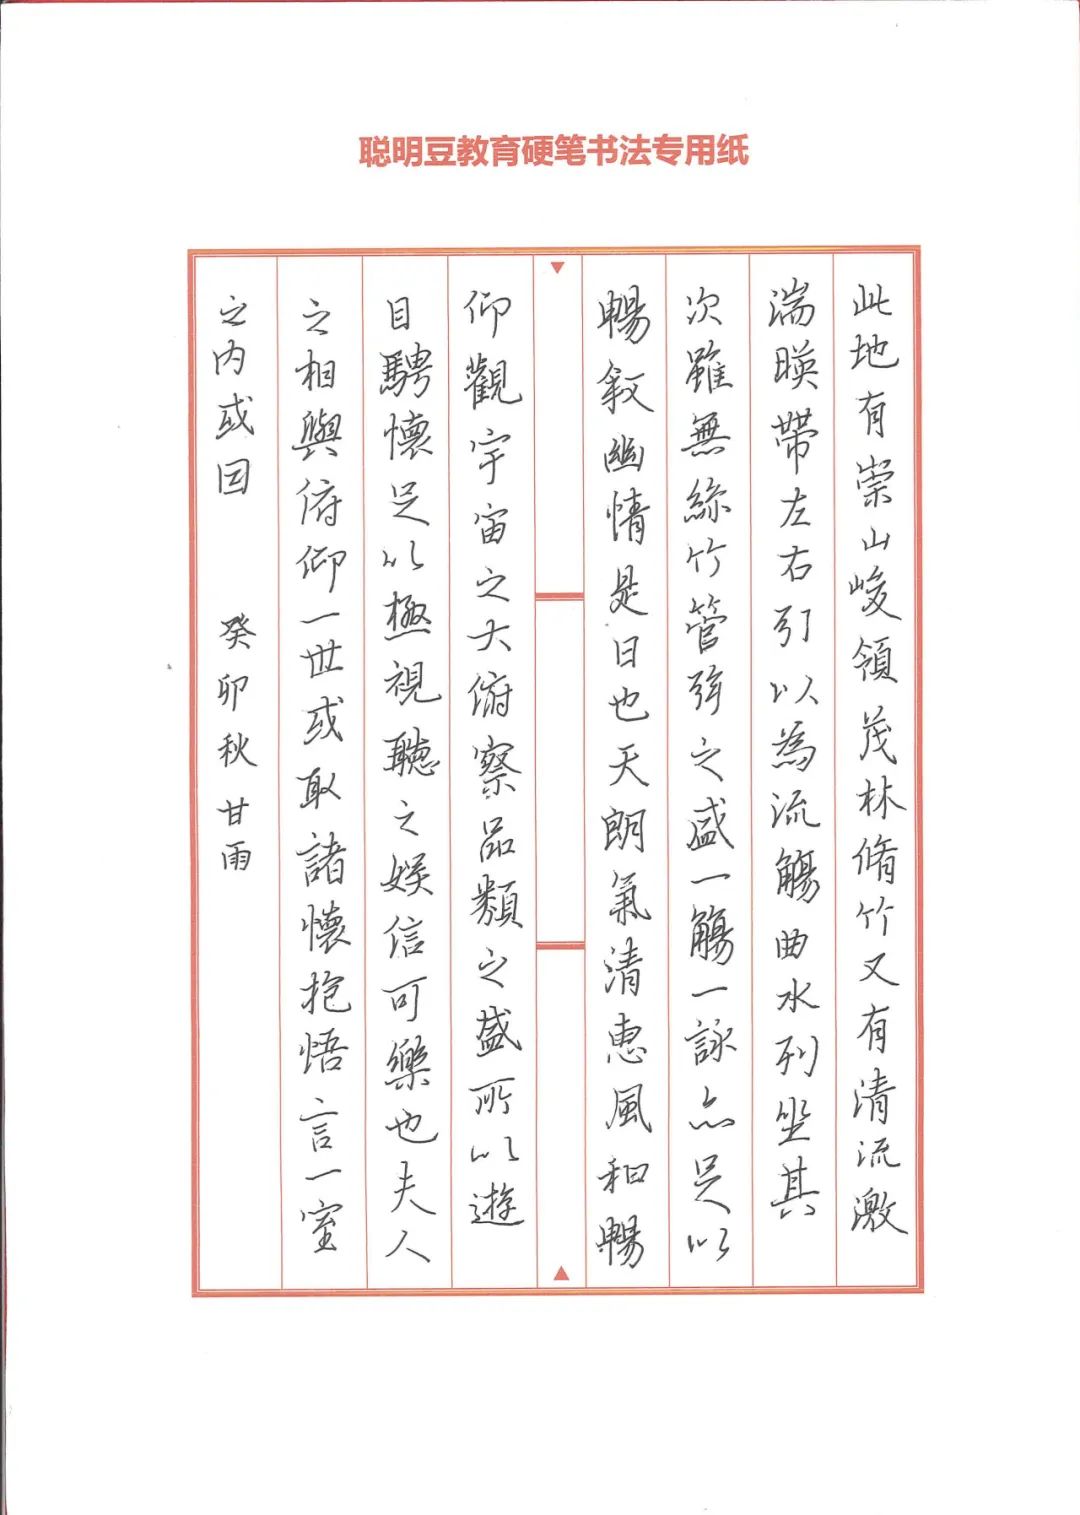 聪明豆教育硬笔书法专用纸
此地有崇山峻領茂林脩竹又有清流激
湍暎帶左右引以為流觴曲水列坐其
次雖無絲竹管弦之盛一觴一詠亦足以
暢敘幽情是日也天朗氣清惠風和暢
仰觀宇宙之大俯察品類之盛所以遊
目騁懷足以極視聽之娛信可樂也夫人
之相與俯仰一世或取諸懷抱悟言一室
之内或因
癸卯秋甘雨